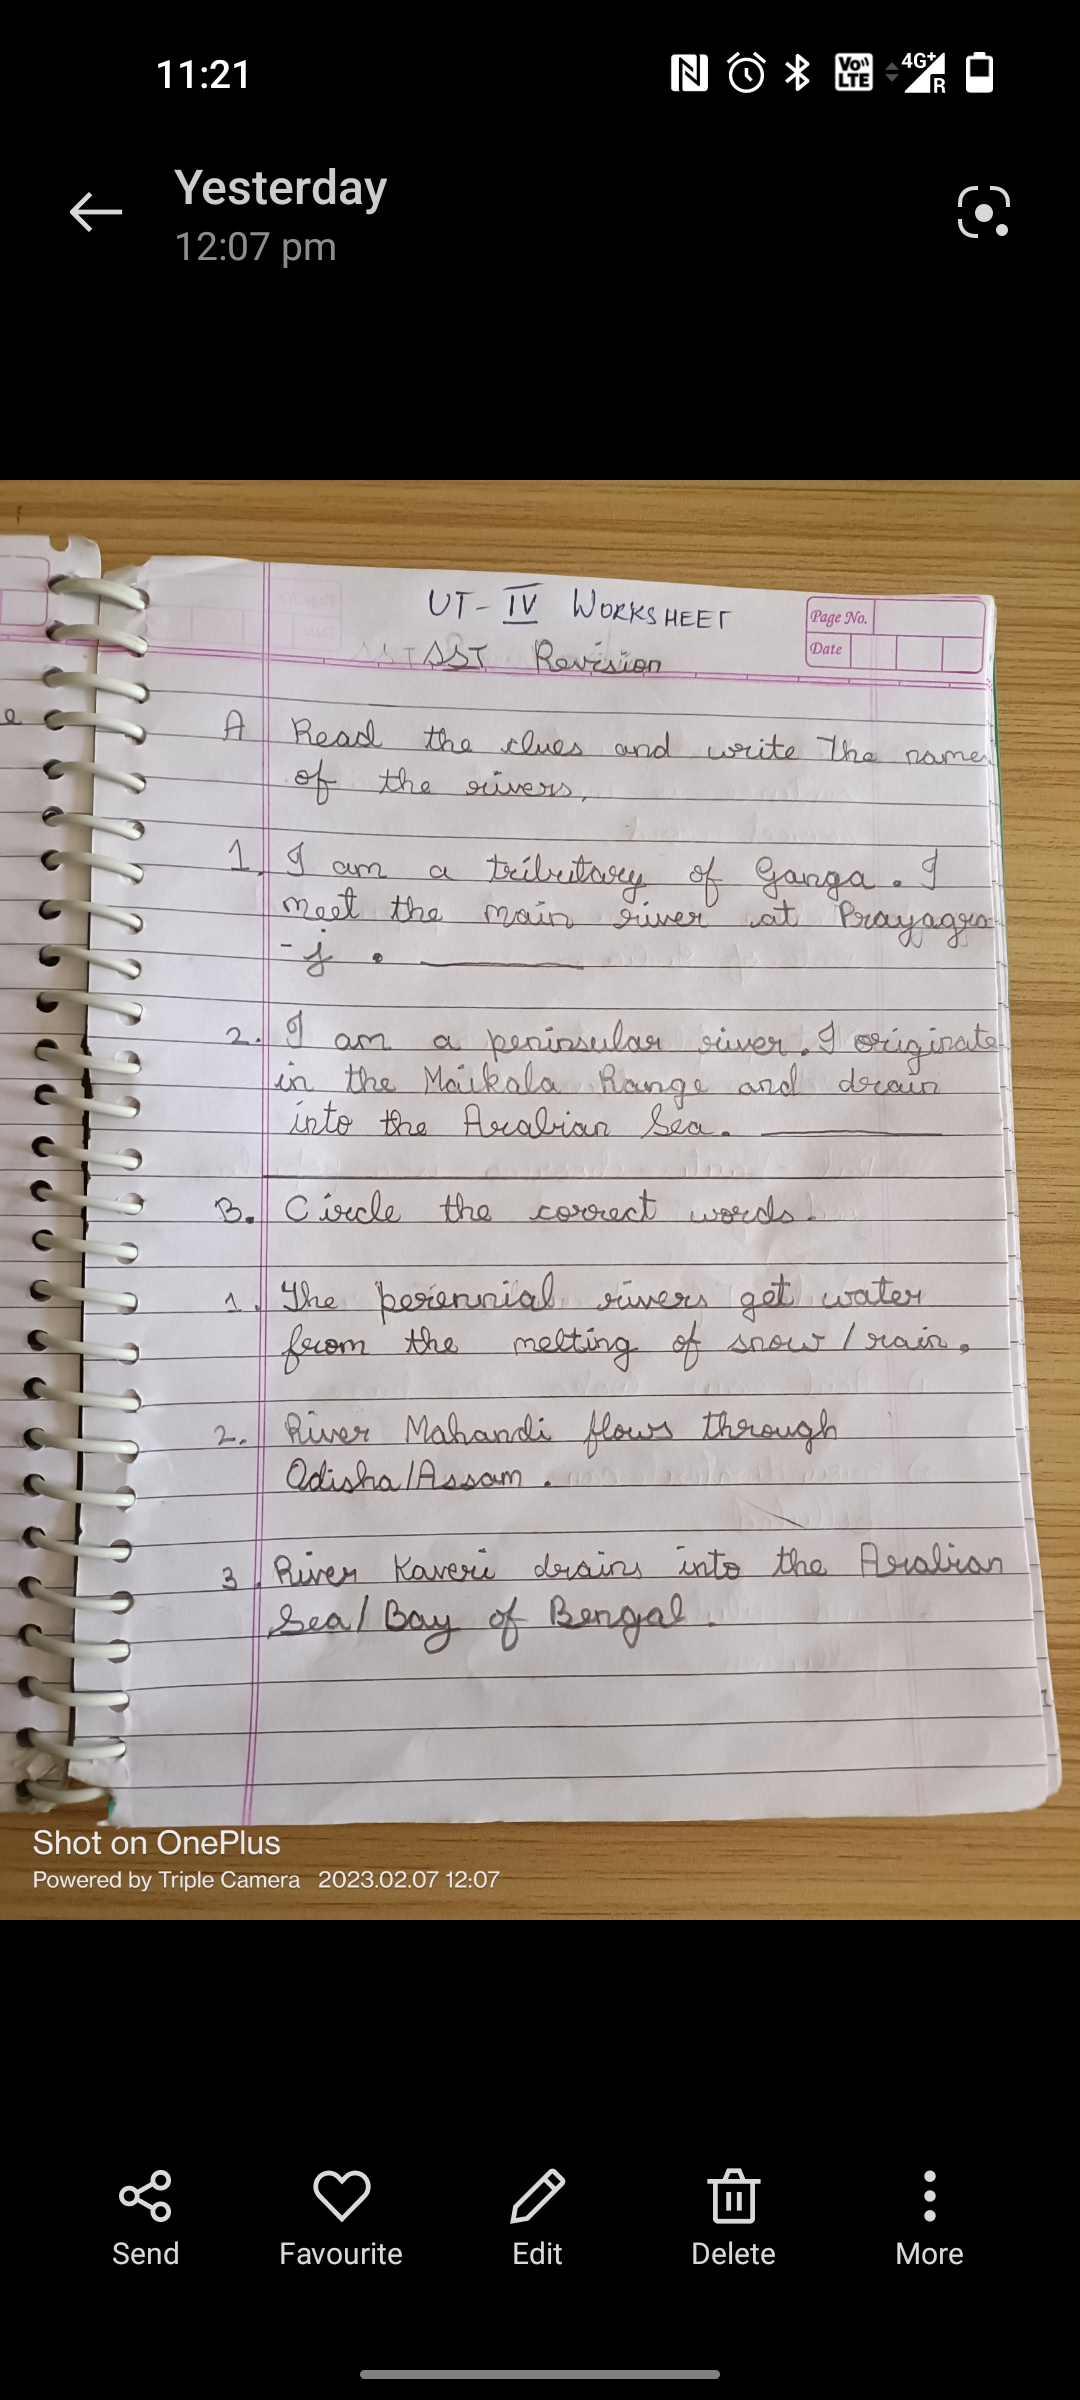 11:21
Vo)) LTE 4G+ R
Yesterday
12:07 pm
UT-IV WORKSHEET
SST Revision
Page No.
Date
A Read the clues and write the name
of the rivers.
1. I am a tributary of Ganga. I
meet the main river at Prayagra
-j.
2. I am a peninsular river. I originate
in the Maikala Range and drain
into the Arabian Sea.
B. Circle the correct words.
1. The perennial rivers get water
from the melting of snow/rain.
2. River Mahandi flows through
Odisha/Assam.
3. River Kaveri drains into the Arabian
Sea/Bay of Bengal.
Shot on OnePlus
Powered by Triple Camera 2023.02.07 12:07
Send Favourite Edit Delete More